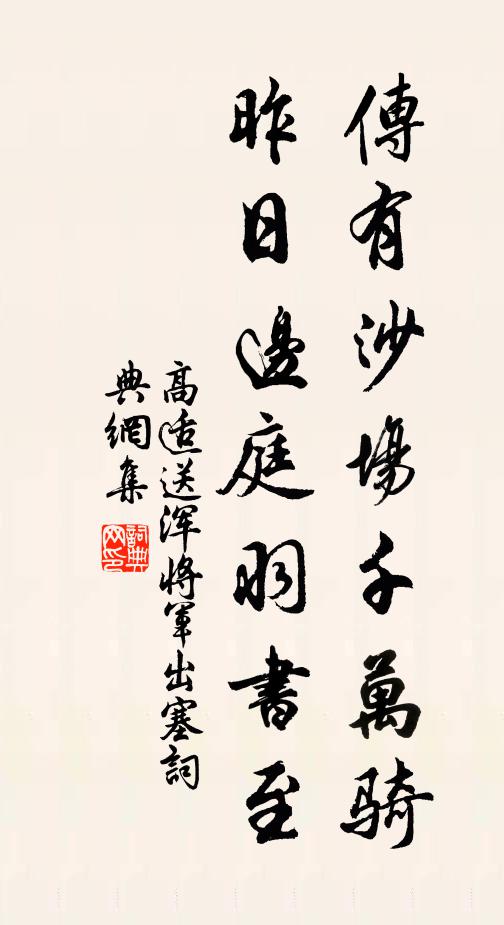 傳有沙場千萬騎
昨日邊庭羽書至
高適送渾將軍出塞詞
典網集
詞典网印